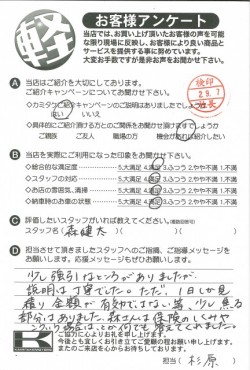 軽
お客様アンケート
当店では、お買い上げ頂いたお客様の声を可能
な限り現場に反映し、お客様により良い商品と
サービスを提供する事に努めています。
大変お手数ですが是非お声をお聞かせ下さい。
検印
29.7
店長
A 当店はご紹介を大切にしております。
ご紹介キャンペーンについてお聞かせ下さい。
◇カミタケご紹介キャンペーンのご説明はありましたでしょうか
はい いいえ
◇具体的にご紹介頂ける方とのご関係をお聞かせ頂けますでしょうか
ご親族 ご友人 職場の方 機会があれば紹介したい
B 当店を実際にご利用になった印象をお聞かせ下さい。
◇総合的な満足度 5.大満足 4.満足 3.ふつう 2.やや不満 1.不満
◇スタッフの対応 5.大満足 4.満足 3.ふつう 2.やや不満 1.不満
◇お店の雰囲気、清掃 5.大満足 4.満足 3.ふつう 2.やや不満 1.不満
◇納車時のお車の状態 5.大満足 4.満足 3.ふつう 2.やや不満 1.不満
C 評価したいスタッフがいれば教えてください。(複数回答可)
スタッフ名( 森健太 )
D 担当させて頂きましたスタッフへのご指摘、ご指導メッセージを
お願いします。応援メッセージもぜひお聞かせ下さい。
少し強引なところがありましたが、
説明は丁寧でした。ただ、1日しか見
積り金額が有効ではない等、少し焦る
部分はありました。森さんは保険のしくみや
こういう場合は…とか何でも答えてくれました。
ご協力に心よりお礼を申し上げます。
今後とも宜しくお引き立てご愛顧の程お願い申し上げます。
またのご来店を心からお待ちしております。
担当( 杉原 )